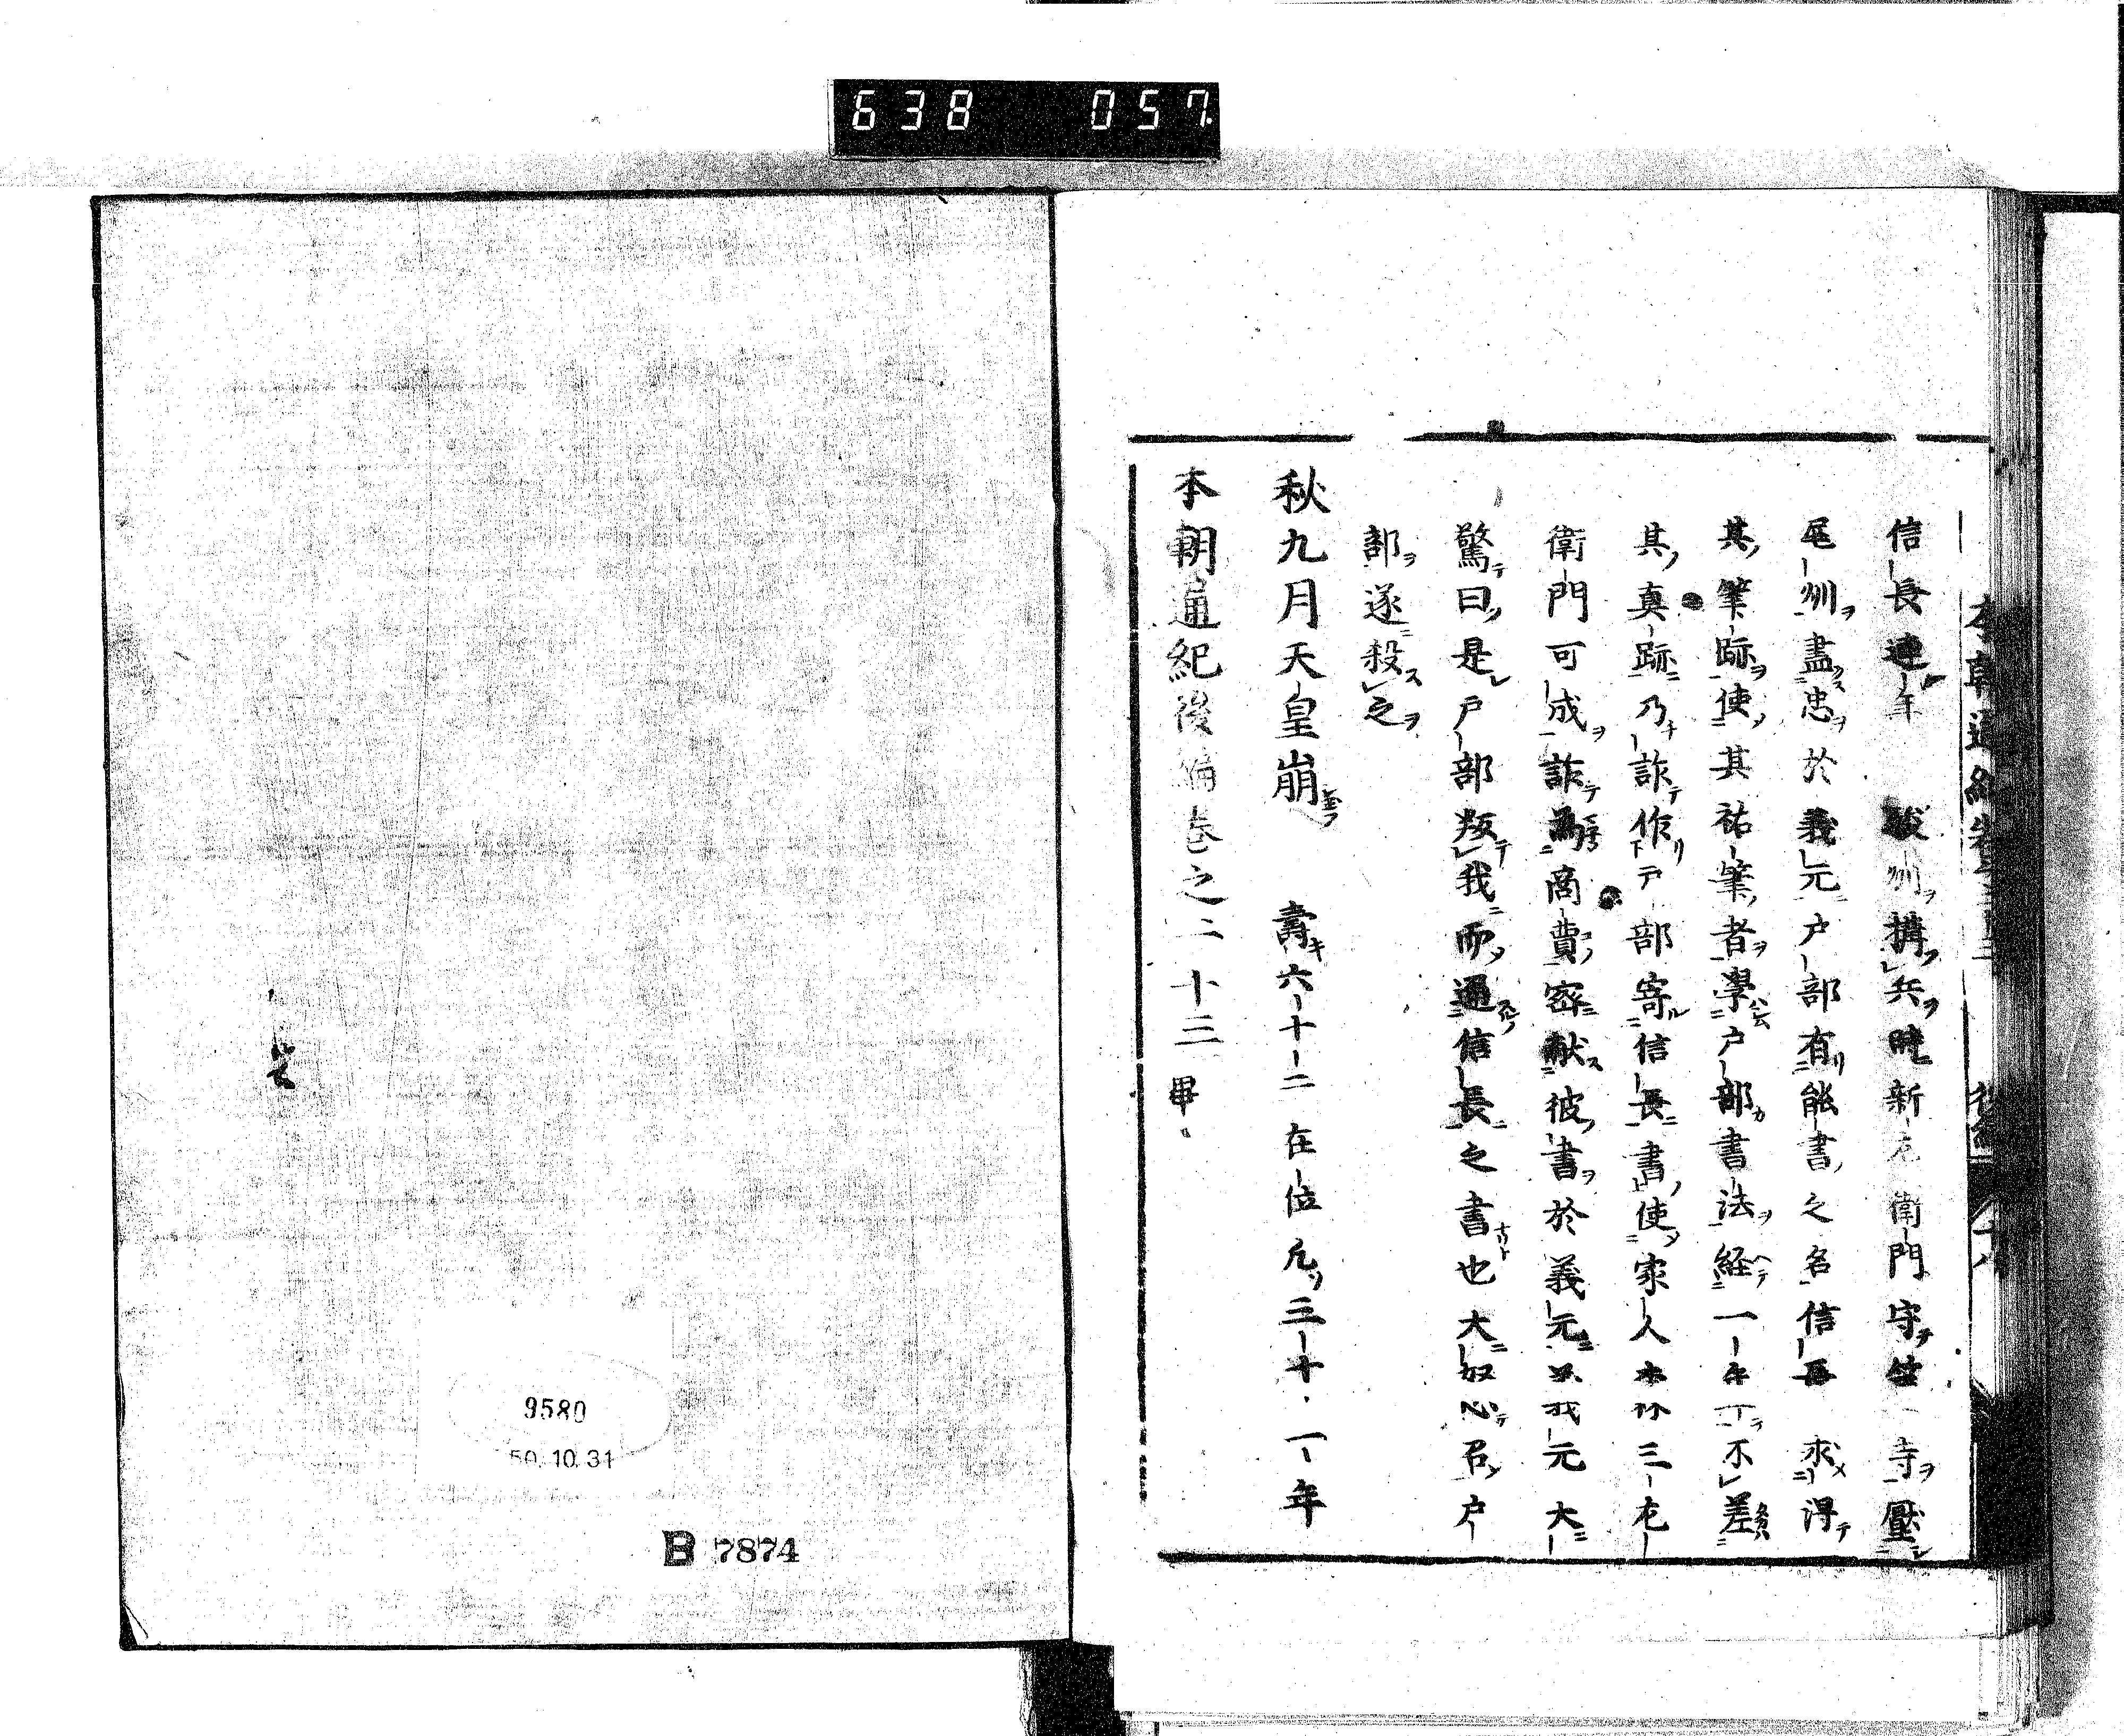 638 057
信長連年 駿州構兵時新左衛門守笠寺壓
尾州盡忠於義元戸部有能書之名信長求得
其筆跡使其祐筆者學戸部書法経一年不差
其真跡乃詐作戸部寄信長書使家人森三
衛門可成詐為商賣密献彼書於義元義元大
驚曰是戸部叛我而通信長之書也大怒召戸
部遂殺之
秋九月天皇崩 壽六十二在位凡三十一年
本朝通紀後編巻之二十三畢
9580
50.10.31
B 7874